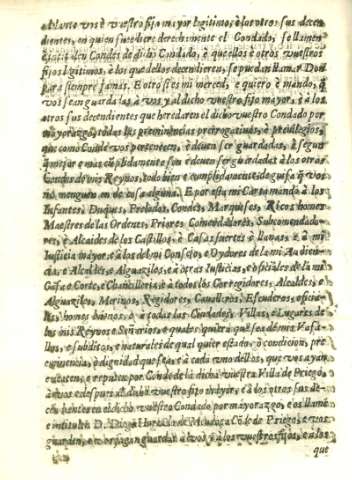 è tanto vos è vuestro fijo mayor legitimo, è los otros sus decen-
dientes, en quien sucediere derechamente el Condado, se llamen
Condes de dicho Condado, è que ellos è otros vuestros
fijos legitimos, è los que dellos decendieren, se puedan llamar Don
para siempre jamàs. E otrosi es mi merced, e quiero è mando, q̃
vos sean guardadas, à vos, y al dicho vuestro fijo mayor, è à los
otros sus decendientes que heredaren el dicho vuestro Condado por
mayorazgo, todas las preminencias prerrogativas, è privilegios,
que como Conde vos pertenecen, è deven ser guardadas, è segun
q̃ mejor è mas cumplidamente son è deven ser guardadas à los otros
Condes de mis Reynos, todo bien è cumplidamente de guisa q̃ vos
nõ menguen en de cosa alguna. E por esta mi Carta mando à los
Infantes, Duques, Perlados, Condes, Marqueses, Ricos homes
Maestres de las Ordenes, Priores, Comendadores, Subcomendado-
res, è Alcaides de los Castillos, è Casas fuertes è llanas, è à mi
Iusticia mayor, e à los de mi Consejo, e Oydores de la mi Audien-
cia, e Alcaldes, e Alguaziles, e à otras Iusticias, e oficiales de la mi
Casa e Corte, e Chancilleria, e à todos los Corregidores, Alcaldes, e
Alguaziles, Merinos, Regidores, Cavalleros, Escuderos, oficia-
les, homes buenos, e à todas las Ciudades, Villas, e Lugares de
los mis Reynos e Señorios, e qualesquiera que sean de mis Vasa-
llos, e subditos, e naturales de qual quier estado, ò condicion, pre-
eminencia, ò dignidad que sea, e à cada uno dellos, que vos ayan
e acaten, e reputen por Conde de la dicha vuestra Villa de Priego,
à vos e despues al dicho vuestro fijo mayor, e à los otros sus de-
cendientes en el dicho vuestro Condado por mayorazgo, e os llamẽ
e intitulen D. Diego Hurtado de Mendoça Cõde de Priego, e vos
guarden, e vos hagan guardar à vos è à los vuestros fijos, e à los
que